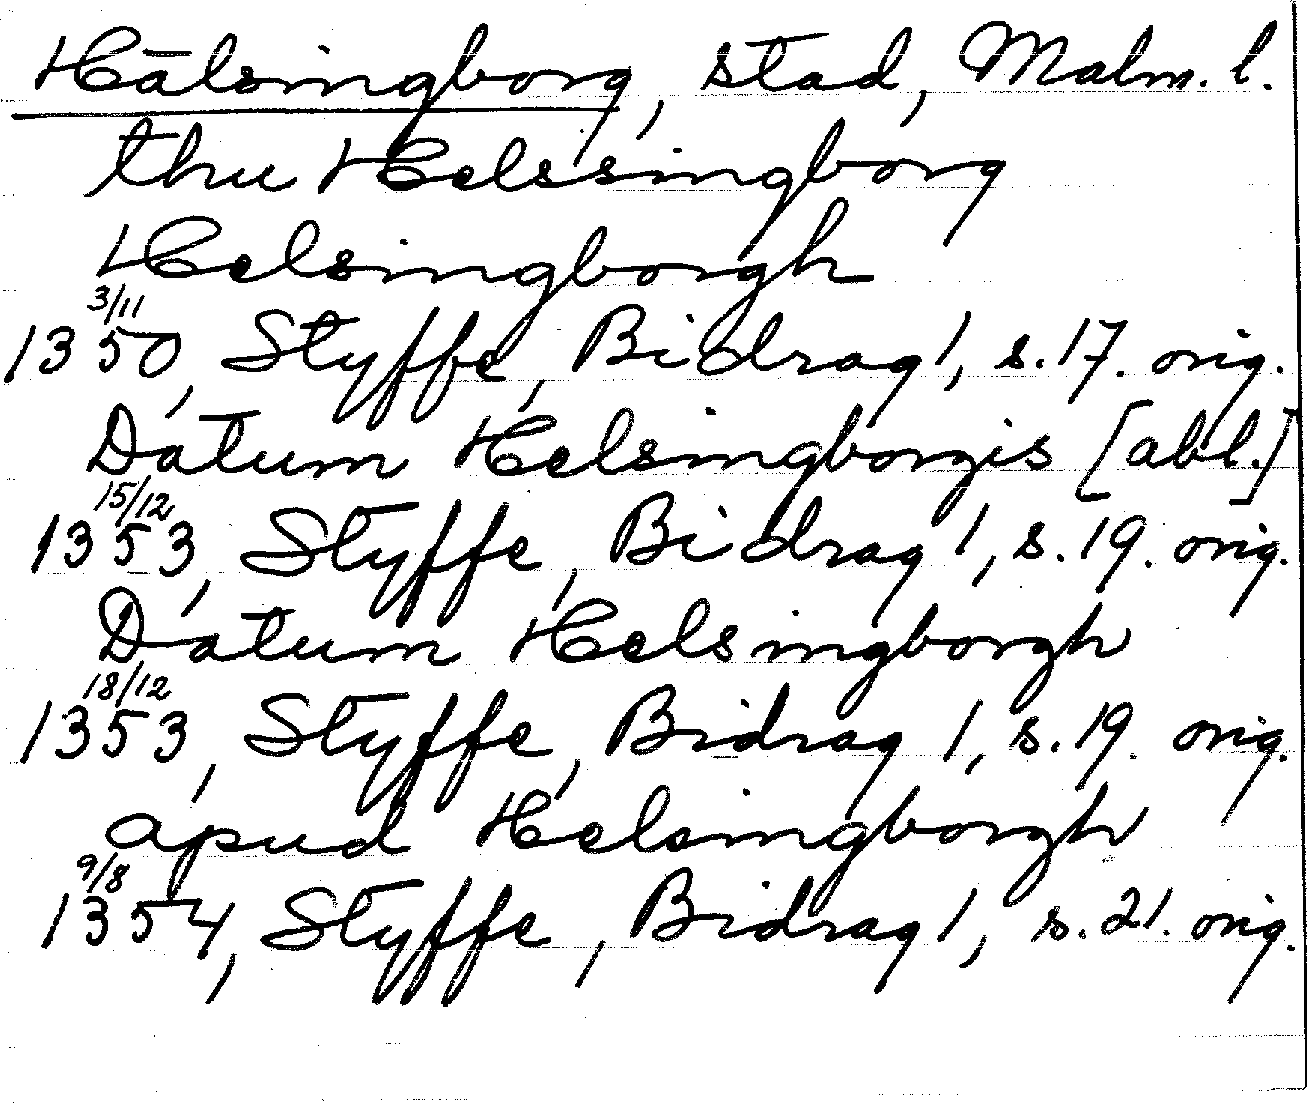 Hälsingborg, stad, Malm. l.
thu Helssingborg
Helsingborgh
3/11
1350, Styffe, Bidrag 1, s. 17. orig.
Datum Helsingborgis [abl.]
15/12
1353, Styffe, Bidrag 1, s. 19. orig.
Datum Helsingborgh
18/12
1353, Styffe, Bidrag 1, s. 19. orig.
apud Helsingborgh
9/8
1354, Styffe, Bidrag 1, s. 21. orig.